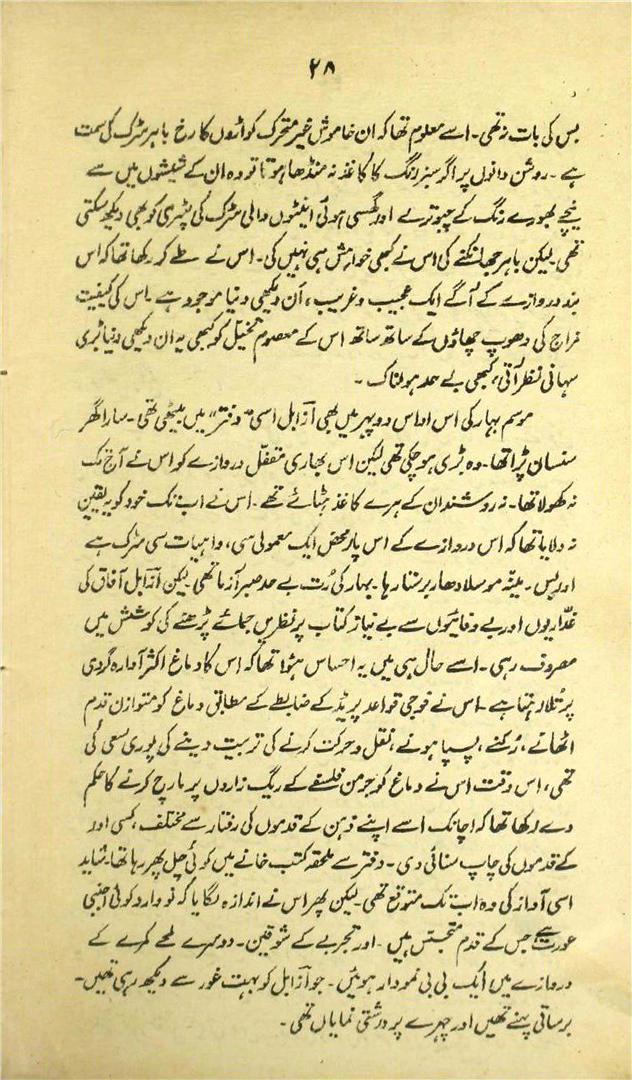 ۲۸
بس کی بات نہ تھی۔ اسے معلوم تھا کہ ان خاموش غیر متحرک کواڑوں کا رخ باہر سڑک کی سمت
ہے۔ روشن دانوں پر اگر سبز رنگ کا کاغذ نہ منڈھا ہوتا تو وہ ان کے شیشوں میں سے
نیچے بھورے رنگ کے چبوترے اور گھسی ہوئی اینٹوں والی سڑک کی پٹری کو بھی دیکھ سکتی
تھی لیکن باہر جھانکنے کی اس نے کبھی خواہش ہی نہیں کی۔ اس نے طے کر رکھا تھا کہ اس
بند دروازے کے آگے ایک عجیب و غریب، اَن دیکھی دنیا موجود ہے۔ اس کی کیفیت
مزاج کی دھوپ چھاؤں کے ساتھ ساتھ اس کے معصوم تخیل کو کبھی یہ ان دیکھی دنیا بڑی
سہانی نظر آتی، کبھی بے حد ہولناک۔
موسم بہار کی اس اداس دوپہر میں بھی آزابل اسی "دفتر" میں بیٹھی تھی۔ سارا گھر
سنسان پڑا تھا۔ وہ بڑی ہو چکی تھی لیکن اس بھاری مقفّل دروازے کو اس نے آج تک
نہ کھولا تھا۔ نہ روشندان کے ہرے کاغذ ہٹائے تھے۔ اس نے اب تک خود کو یہ یقین
نہ دلایا تھا کہ اس دروازے کے اس پار محض ایک معمولی سی، واہیات سی سڑک ہے
اور بس۔ مینہ موسلا دھار برستا رہا۔ بہار کی رُت بے حد صبر آزما تھی لیکن آزابل آفاق کی
غدّاریوں اور بے وفائیوں سے بے نیاز کتاب پر نظریں جمائے پڑھنے کی کوشش میں
مصروف رہی۔ اسے حال ہی میں یہ احساس ہوا تھا کہ اس کا دماغ اکثر آوارہ گردی
پر تُلا رہتا ہے۔ اس نے فوجی قواعد پریڈ کے ضابطے کے مطابق دماغ کو متوازن قدم
اٹھانے، رُکنے، پسپا ہونے، نقل و حرکت کرنے کی تربیت دینے کی پوری سعی کی
تھی، اس وقت اس نے دماغ کو جرمن فلسفے کے ریگ زاروں پر مارچ کرنے کا حکم
دے رکھا تھا کہ اچانک اسے اپنے ذہن کے قدموں کی رفتار سے مختلف، کسی اور
کے قدموں کی چاپ سنائی دی۔ دفتر سے ملحقہ کتب خانے میں کوئی چل پھر رہا تھا۔ شاید
اسی آواز کی وہ اب تک متوقع تھی لیکن پھر اس نے اندازہ لگایا کہ نو وارد کوئی اجنبی
عورت ہے جس کے قدم متجسّس ہیں۔ اور تجربے کے شوقین۔ دوسرے لمحے کمرے کے
دروازے میں ایک بی بی نمودار ہوئیں۔ جو آزابل کو بہت غور سے دیکھ رہی تھیں۔
برساتی پہنے تھیں اور چہرے پر درشتی نمایاں تھی۔